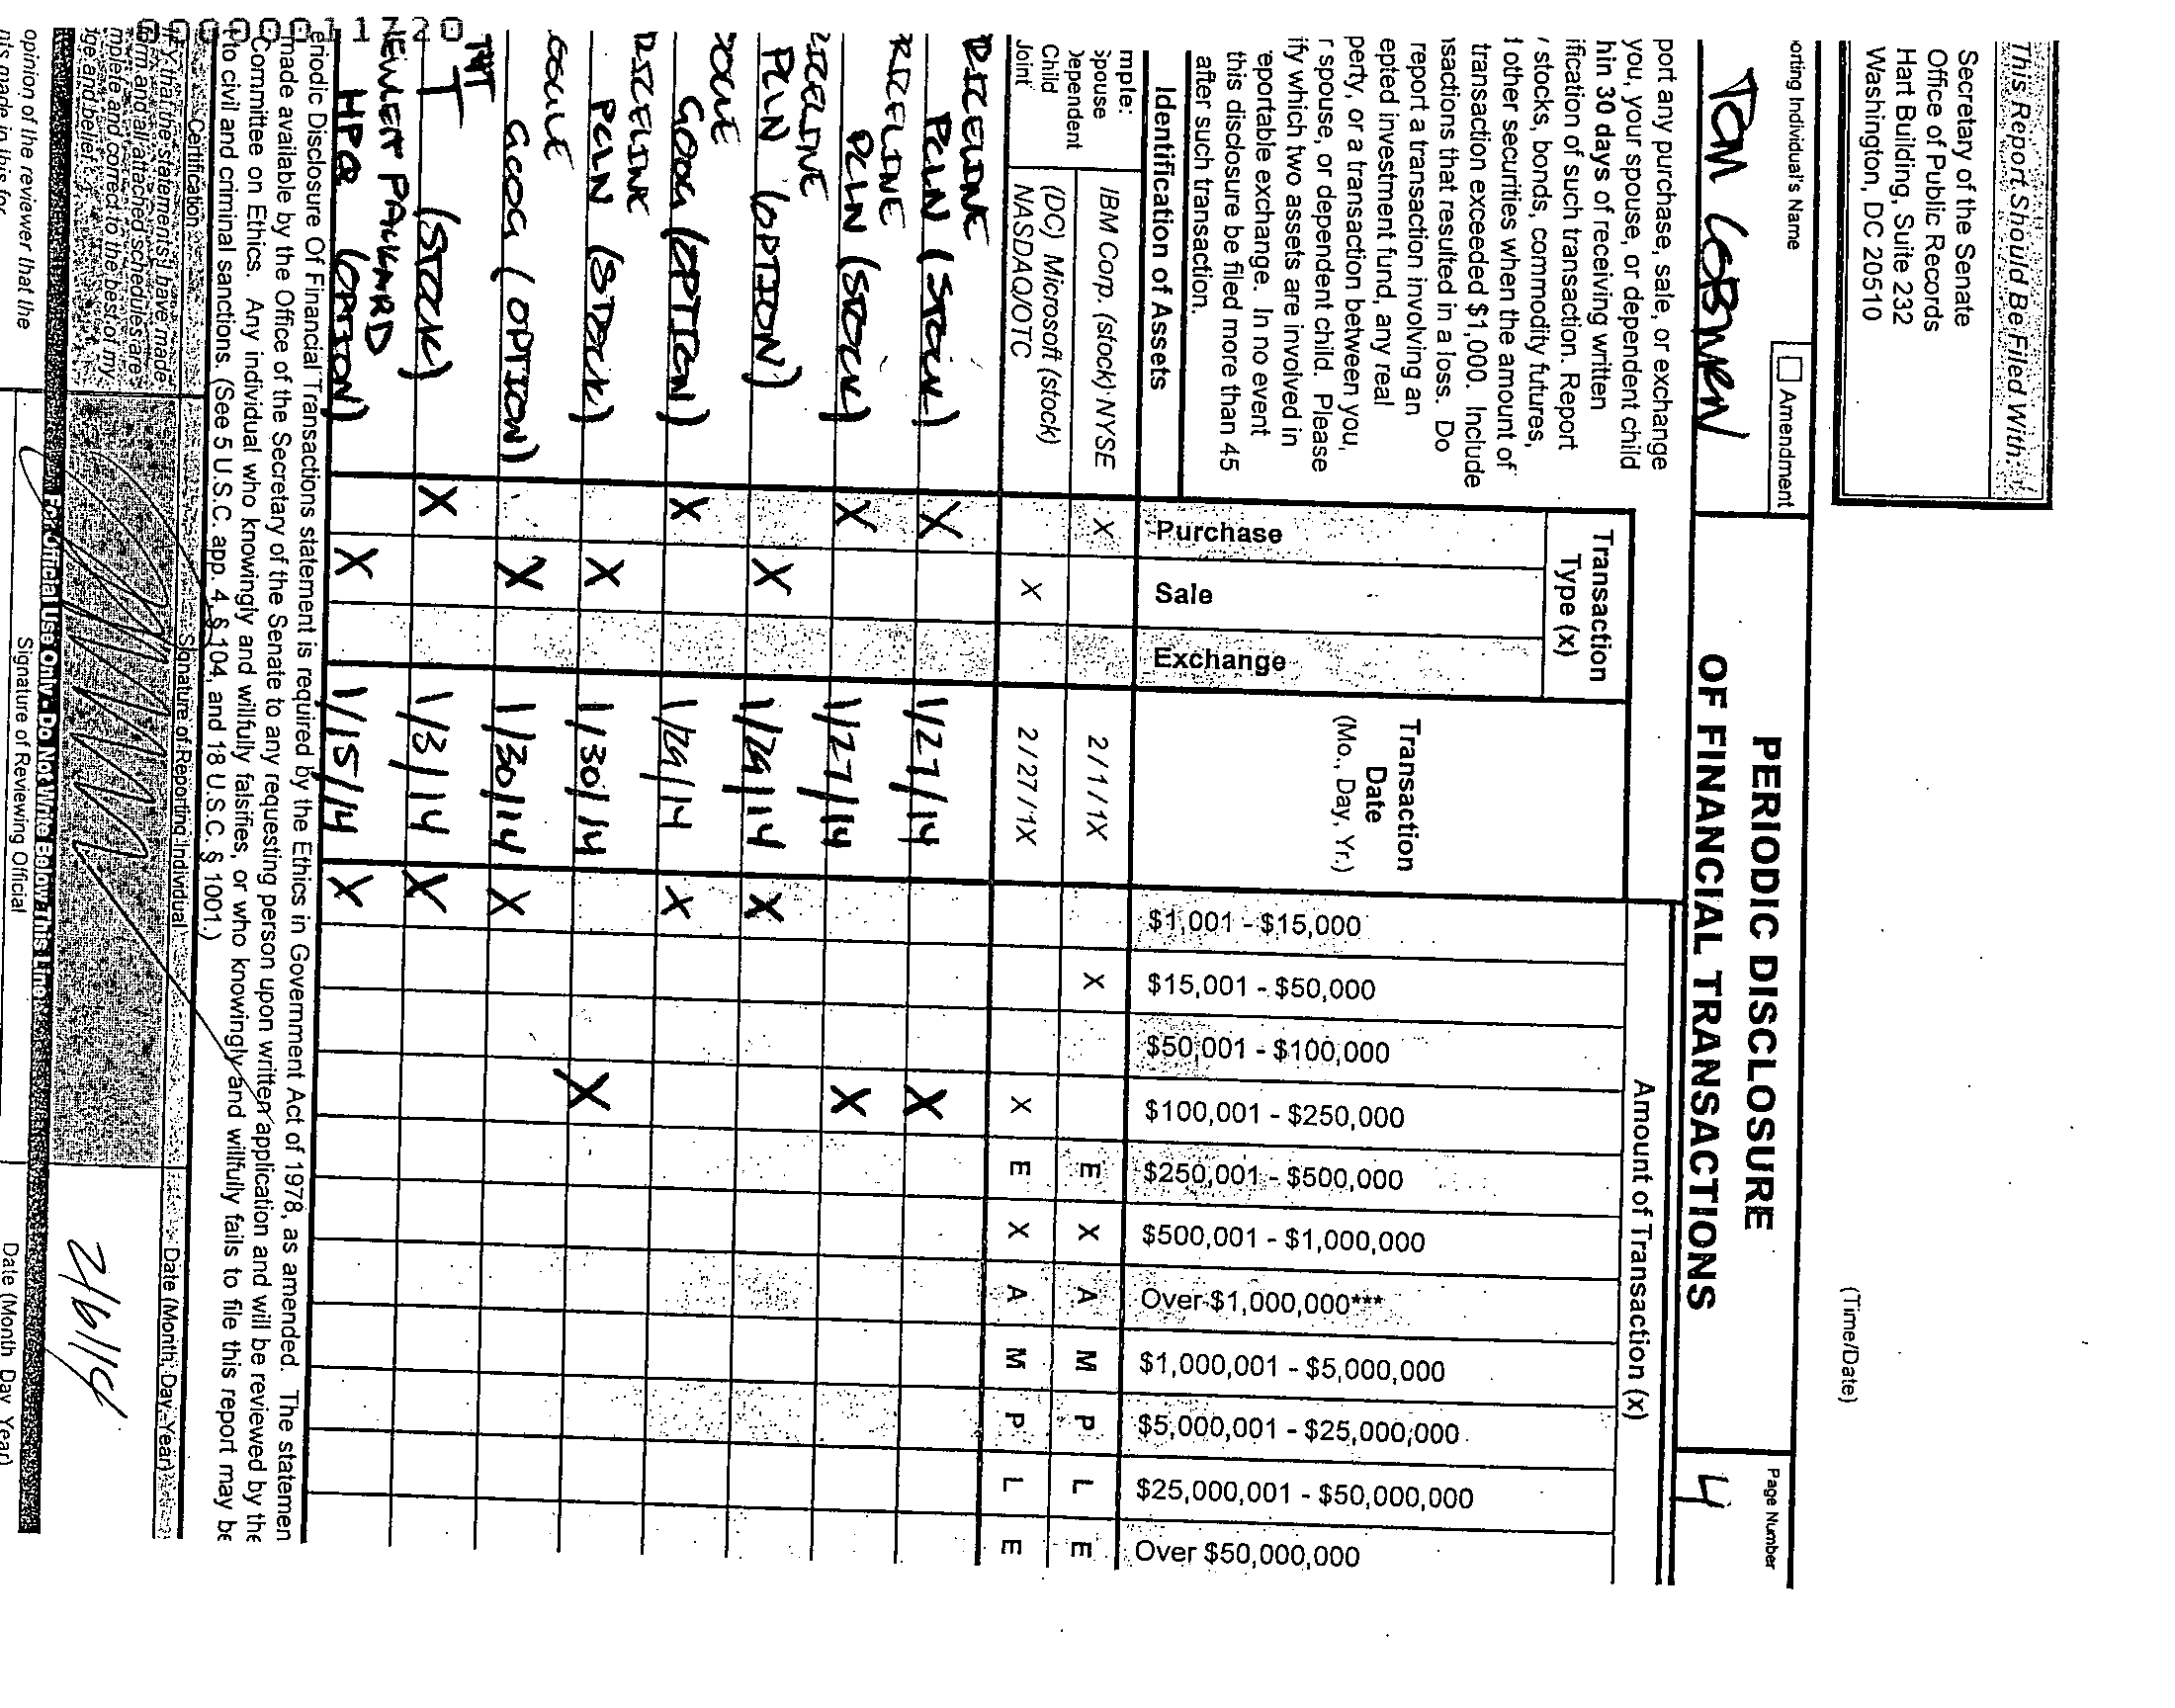 This Report Should Be Filed With:
Secretary of the Senate
Office of Public Records
Hart Building, Suite 232
Washington, DC 20510
(Time/Date)
PERIODIC DISCLOSURE
OF FINANCIAL TRANSACTIONS
orting Individual's Name
Amendment
Page Number
TOM COBURN
4
port any purchase, sale, or exchange
you, your spouse, or dependent child
hin 30 days of receiving written
ification of such transaction. Report
stocks, bonds, commodity futures,
other securities when the amount of
transaction exceeded $1,000. Include
nsactions that resulted in a loss. Do
report a transaction involving an
epted investment fund, any real
perty, or a transaction between you,
r spouse, or dependent child. Please
ify which two assets are involved in
reportable exchange. In no event
this disclosure be filed more than 45
after such transaction.
Identification of Assets
Transaction
Type (x)
Purchase
Sale
Exchange
Transaction
Date
(Mo., Day, Yr.)
Amount of Transaction (x)
$1,001 - $15,000
$15,001 - $50,000
$50,001 - $100,000
$100,001 - $250,000
$250,001 - $500,000
$500,001 - $1,000,000
Over $1,000,000***
$1,000,001 - $5,000,000
$5,000,001 - $25,000,000
$25,000,001 - $50,000,000
Over $50,000,000
mple:
Spouse
Dependent
Child
Joint
IBM Corp. (stock) NYSE X 2/1/1X X E X A M P L E
(DC) Microsoft (stock)
NASDAQ/OTC X 2/27/1X X E X A M P L E
RICELINE
PCLN (STOCK) X 1/27/14 X
RICELINE
PCLN (STOCK) X 1/27/14 X
RICELINE
PCLN (OPTION) X 1/29/14 X
GOOG (OPTION) X 1/29/14 X
RICELINE
PCLN (STOCK) X 1/30/14 X
OOGLE
GOOG (OPTION) X 1/30/14 X
T (STOCK) X 1/3/14 X
HEWLETT PACKARD
HPQ (OPTION) X 1/15/14 X
eriodic Disclosure Of Financial Transactions statement is required by the Ethics in Government Act of 1978, as amended. The statemen
made available by the Office of the Secretary of the Senate to any requesting person upon written application and will be reviewed by the
Committee on Ethics. Any individual who knowingly and willfully falsifies, or who knowingly and willfully fails to file this report may be
to civil and criminal sanctions. (See 5 U.S.C. app. 4, § 104, and 18 U.S.C. § 1001.)
Certification
Signature of Reporting Individual
Date (Month, Day, Year)
Y that the statements I have made
rm and all attached schedules are
mplete and correct to the best of my
ge and belief.
2/6/14
For Official Use Only - Do Not Write Below This Line
opinion of the reviewer that the
nts made in this for
Signature of Reviewing Official
Date (Month Day Year)